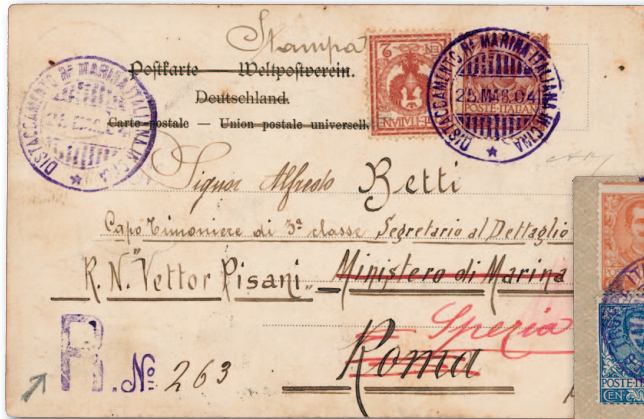 Stampa
Postkarte Weltpostverein.
Deutschland.
Carte postale — Union postale universelle
DISTACCAMENTO Rª MARINA ITALIANA IN CINA
25.MAR.04
DISTACCAMENTO Rª MARINA ITALIANA IN CINA
POSTE ITALIANE
2
Signor Alfredo Betti
Capo Timoniere di 3ª classe Segretario al Dettaglio
R. N. "Vettor Pisani" Ministero di Marina
Spezia
Roma
R. No 263
POSTE ITA
CEN